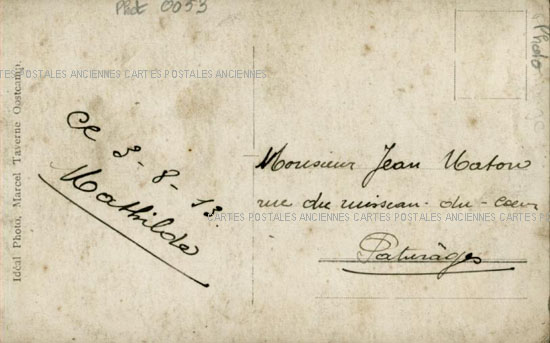 Phot 0053
Photo
CARTES POSTALES ANCIENNES CARTES POSTALES ANCIENNES
Idéal Photo, Marcel Taverne Oostcamp.
Ce 3-8-13
Mathilde
Monsieur Jean Maton
rue du ruisseau-du-coeur
CARTES POSTALES ANCIENNES CARTES POSTALES ANCIENNES CARTES POSTALES
Paturâges